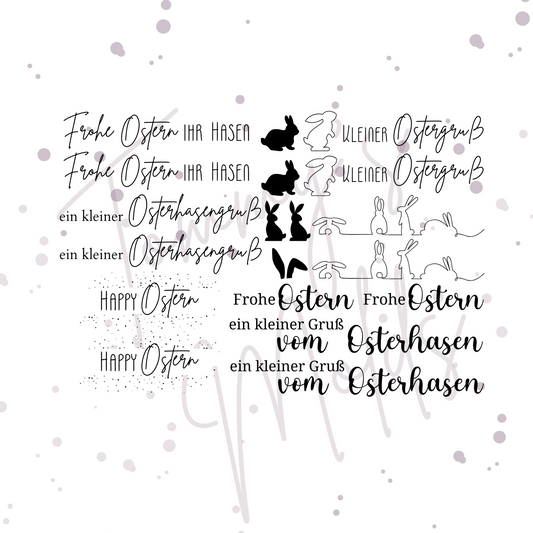 Frohe Ostern IHR HASEN KLEINER Ostergruß
Frohe Ostern IHR HASEN KLEINER Ostergruß
ein kleiner Osterhasengruß
ein kleiner Osterhasengruß
HAPPY Ostern
Frohe Ostern Frohe Ostern
ein kleiner Gruß
vom Osterhasen
HAPPY Ostern
ein kleiner Gruß
vom Osterhasen